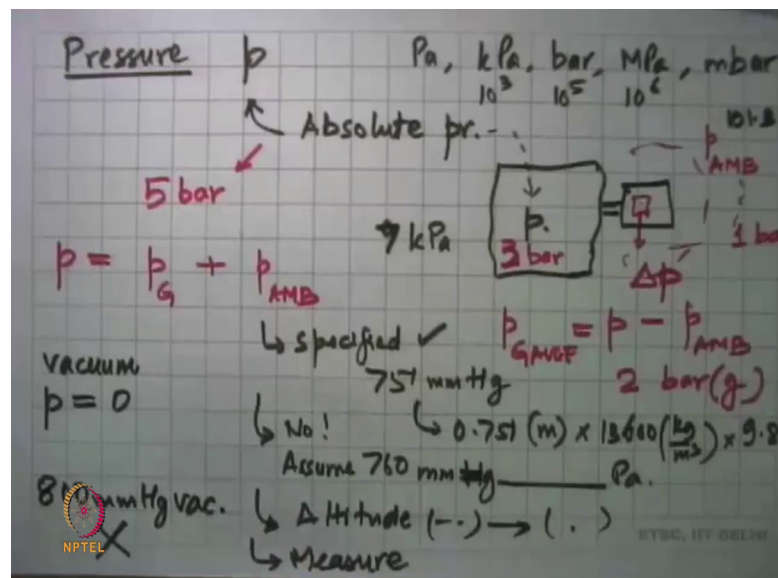 Pressure p Pa, kPa, bar, MPa, mbar
10³ 10⁵ 10⁶
Absolute pr.
101.3
p AMB
5 bar
p.
7 kPa
3 bar
1 ba
Δp
p = p G + p AMB
p GAUGE = p - p AMB
↳ specified ✓
2 bar(g)
vacuum
751 mmHg
p = 0
↳ No! ↳ 0.751 (m) × 13600 (kg/m³) × 9.8
Assume 760 mmHg ____ Pa.
mmHg vac.
↳ Altitude (-.) → ( . )
NPTEL
↳ Measure
ETSC, IIT DELHI